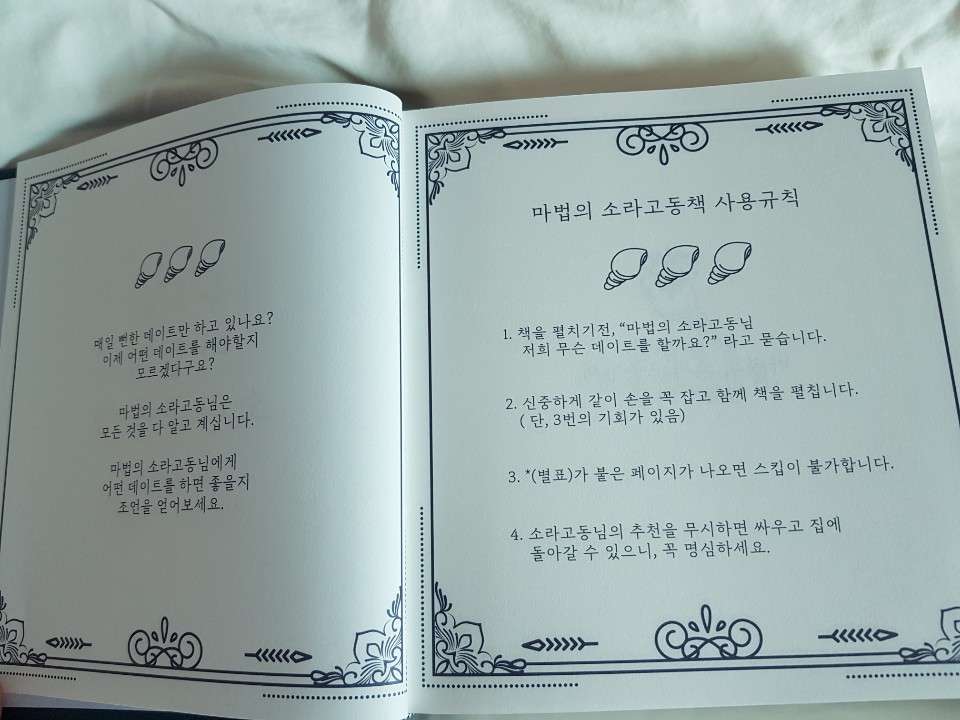 매일 뻔한 데이트만 하고 있나요?
이제 어떤 데이트를 해야할지
모르겠다구요?
마법의 소라고동님은
모든 것을 다 알고 계십니다.
마법의 소라고동님에게
어떤 데이트를 하면 좋을지
조언을 얻어보세요.
마법의 소라고동책 사용규칙
1. 책을 펼치기전, “마법의 소라고동님
저희 무슨 데이트를 할까요?” 라고 묻습니다.
2. 신중하게 같이 손을 꼭 잡고 함께 책을 펼칩니다.
( 단, 3번의 기회가 있음)
3. *(별표)가 붙은 페이지가 나오면 스킵이 불가합니다.
4. 소라고동님의 추천을 무시하면 싸우고 집에
돌아갈 수 있으니, 꼭 명심하세요.